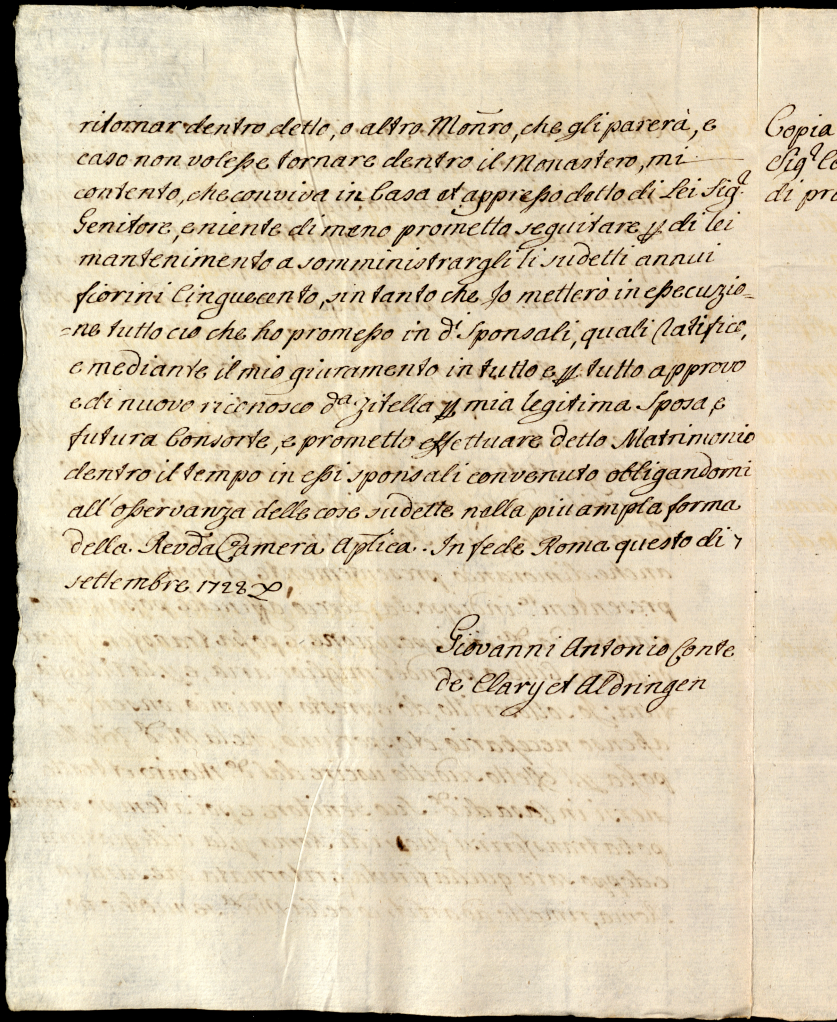 ritornar dentro detto, o altro Monro, che gli parerà, e
caso non volesse tornare dentro il Monastero, mi
contento, che conviva in Casa et appresso detto di Lei Sigr
Genitore, e niente di meno prometto seguitare p di lei
mantenimento a somministrargli li sudetti annui
fiorini Cinquecento, sin tanto che Io metterò in essecuzio-
-ne tutto ciò che ho promesso in di Sponsali, quali ratifico,
e mediante il mio giuramento in tutto e p tutto approvo
e di nuovo riconosco da Zitella p mia legitima Sposa, e
futura Consorte, e prometto effettuare detto Matrimonio
dentro il tempo in essi sponsali convenuto obligandomi
all'osservanza delle cose sudette nella piu ampla forma
della Revda Camera Aplica. In fede Roma questo di 7
settembre 1728
Giovanni Antonio Conte
de Clary et Aldringen
Copia
Sigr Co
di pro